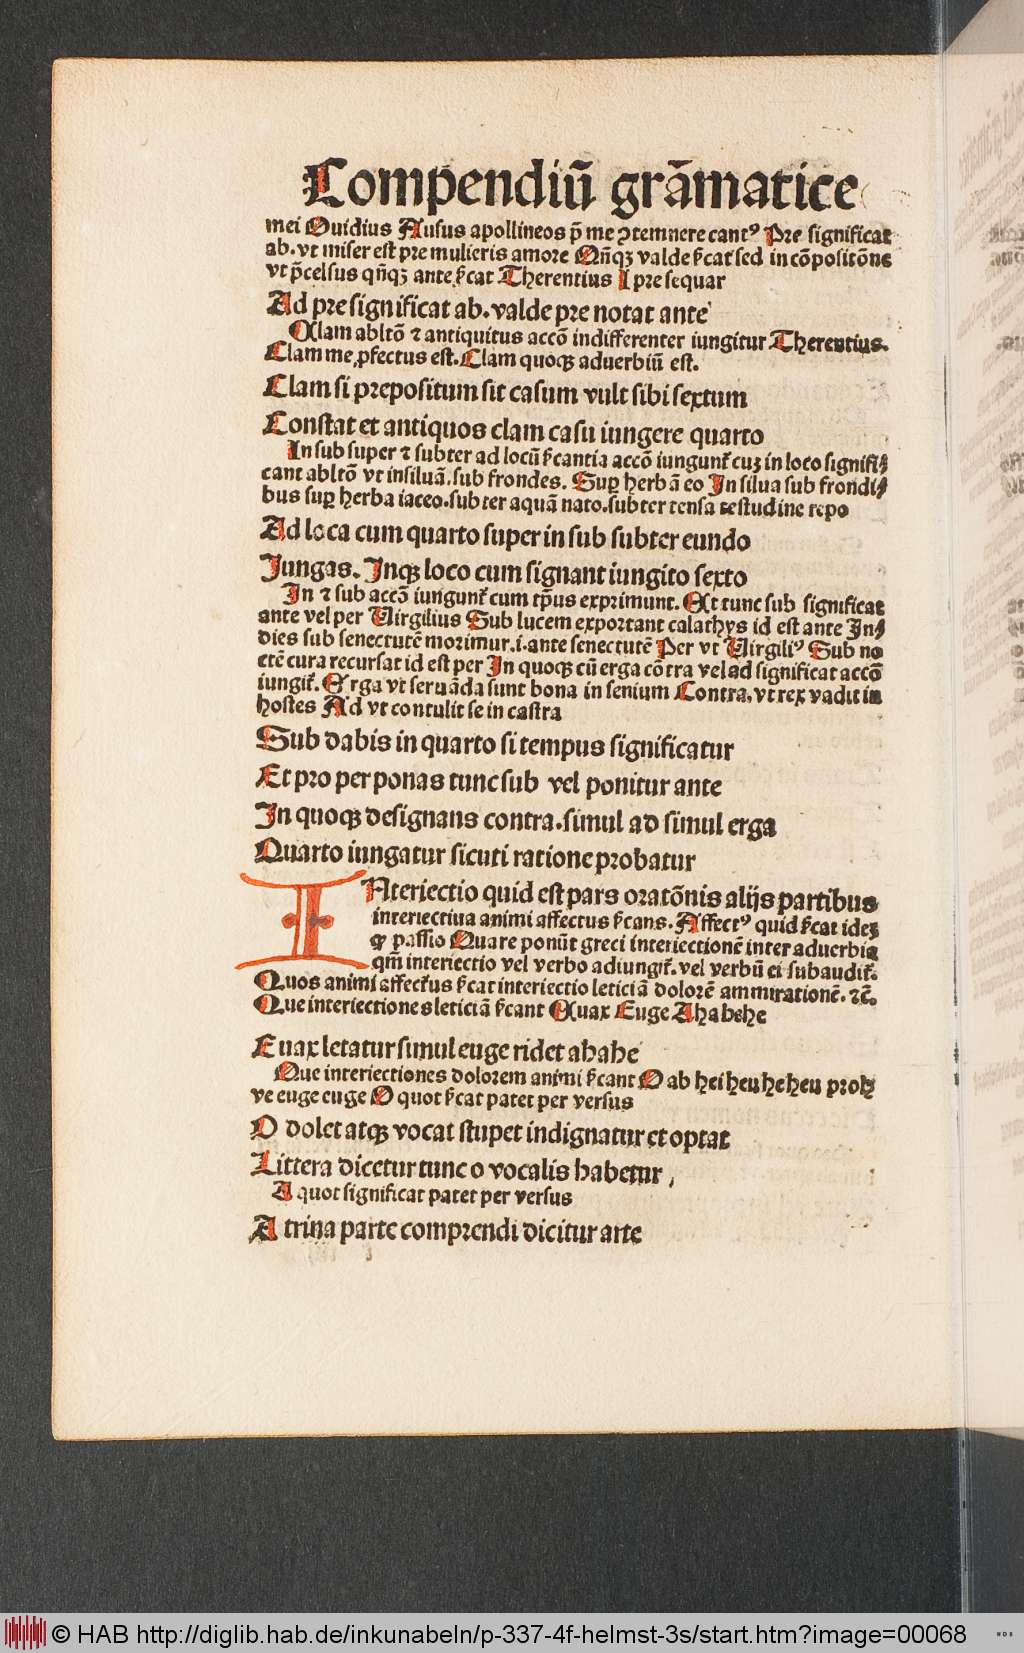 Compendiū grāmatice
mei Ouidius Ausus apollineos p̄ me ꝯtemnere cantꝰ Pre significat
ab. vt miser est pre mulieris amore Qn̄qꝫ valde ſ̄cat sed in cōpositōne
vt p̄celsus qn̄qꝫ ante ſ̄cat Therentius I pre sequar
Ad pre significat ab. valde pre notat ante
Clam abltō ⁊ antiquitus accō indifferenter iungitur Therentius.
Clam me ꝓfectus est. Clam quoqꝫ aduerbiū est.
Clam si prepositum sit casum vult sibi sextum
Constat et antiquos clam casu iungere quarto
In sub super ⁊ subter ad locū ſ̄cantia accō iungunt᷑ cuꝫ in loco signifi⸗
cant abltō vt in siluā. sub frondes. Suꝑ herbā eo In silua sub frondi⸗
bus suꝑ herba iaceo. subter aquā nato. subter tensa testudine repo
Ad loca cum quarto super in sub subter eundo
Jungas. Inqꝫ loco cum signant iungito sexto
In ⁊ sub accō iungunt᷑ cum tp̄us exprimunt. Et tunc sub significat
ante vel per Virgilius Sub lucem exportant calathys id est ante In⸗
dies sub senectutē morimur .i. ante senectutē Per vt Virgiliꝰ Sub no
ctē cura recursat id est per In quoqꝫ cū erga cōtra vel ad significat accō
iungit᷑. Erga vt seruāda sunt bona in senium Contra, vt rex vadit in
hostes Ad vt contulit se in castra
Sub dabis in quarto si tempus significatur
Et pro per ponas tunc sub vel ponitur ante
In quoqꝫ designans contra. simul ad simul erga
Quarto iungatur sicuti ratione probatur
INteriectio quid est pars oratōnis alijs partibus
interiectiua animi affectus ſ̄cans. Affectꝰ quid ſ̄cat ideꝫ
ꝙ passio Quare ponūt greci interiectionē inter aduerbia
qm̄ interiectio vel verbo adiungit᷑. vel verbū ei subaudit᷑.
Quos animi affectus ſ̄cat interiectio leticiā dolorē ammirationē. ⁊c̄.
Que interiectiones leticiā ſ̄cant Euax Euge Ahabehe
Euax letatur simul euge ridet ahahe
Que interiectiones dolorem animi ſ̄cant O ah hei heu heheu proh
ve euge euge O quot ſ̄cat patet per versus
O dolet atqꝫ vocat stupet indignatur et optat
Littera dicetur tunc o vocalis habetur
A quot significat patet per versus
A trina parte comprendi dicitur arte
© HAB http://diglib.hab.de/inkunabeln/p-337-4f-helmst-3s/start.htm?image=00068